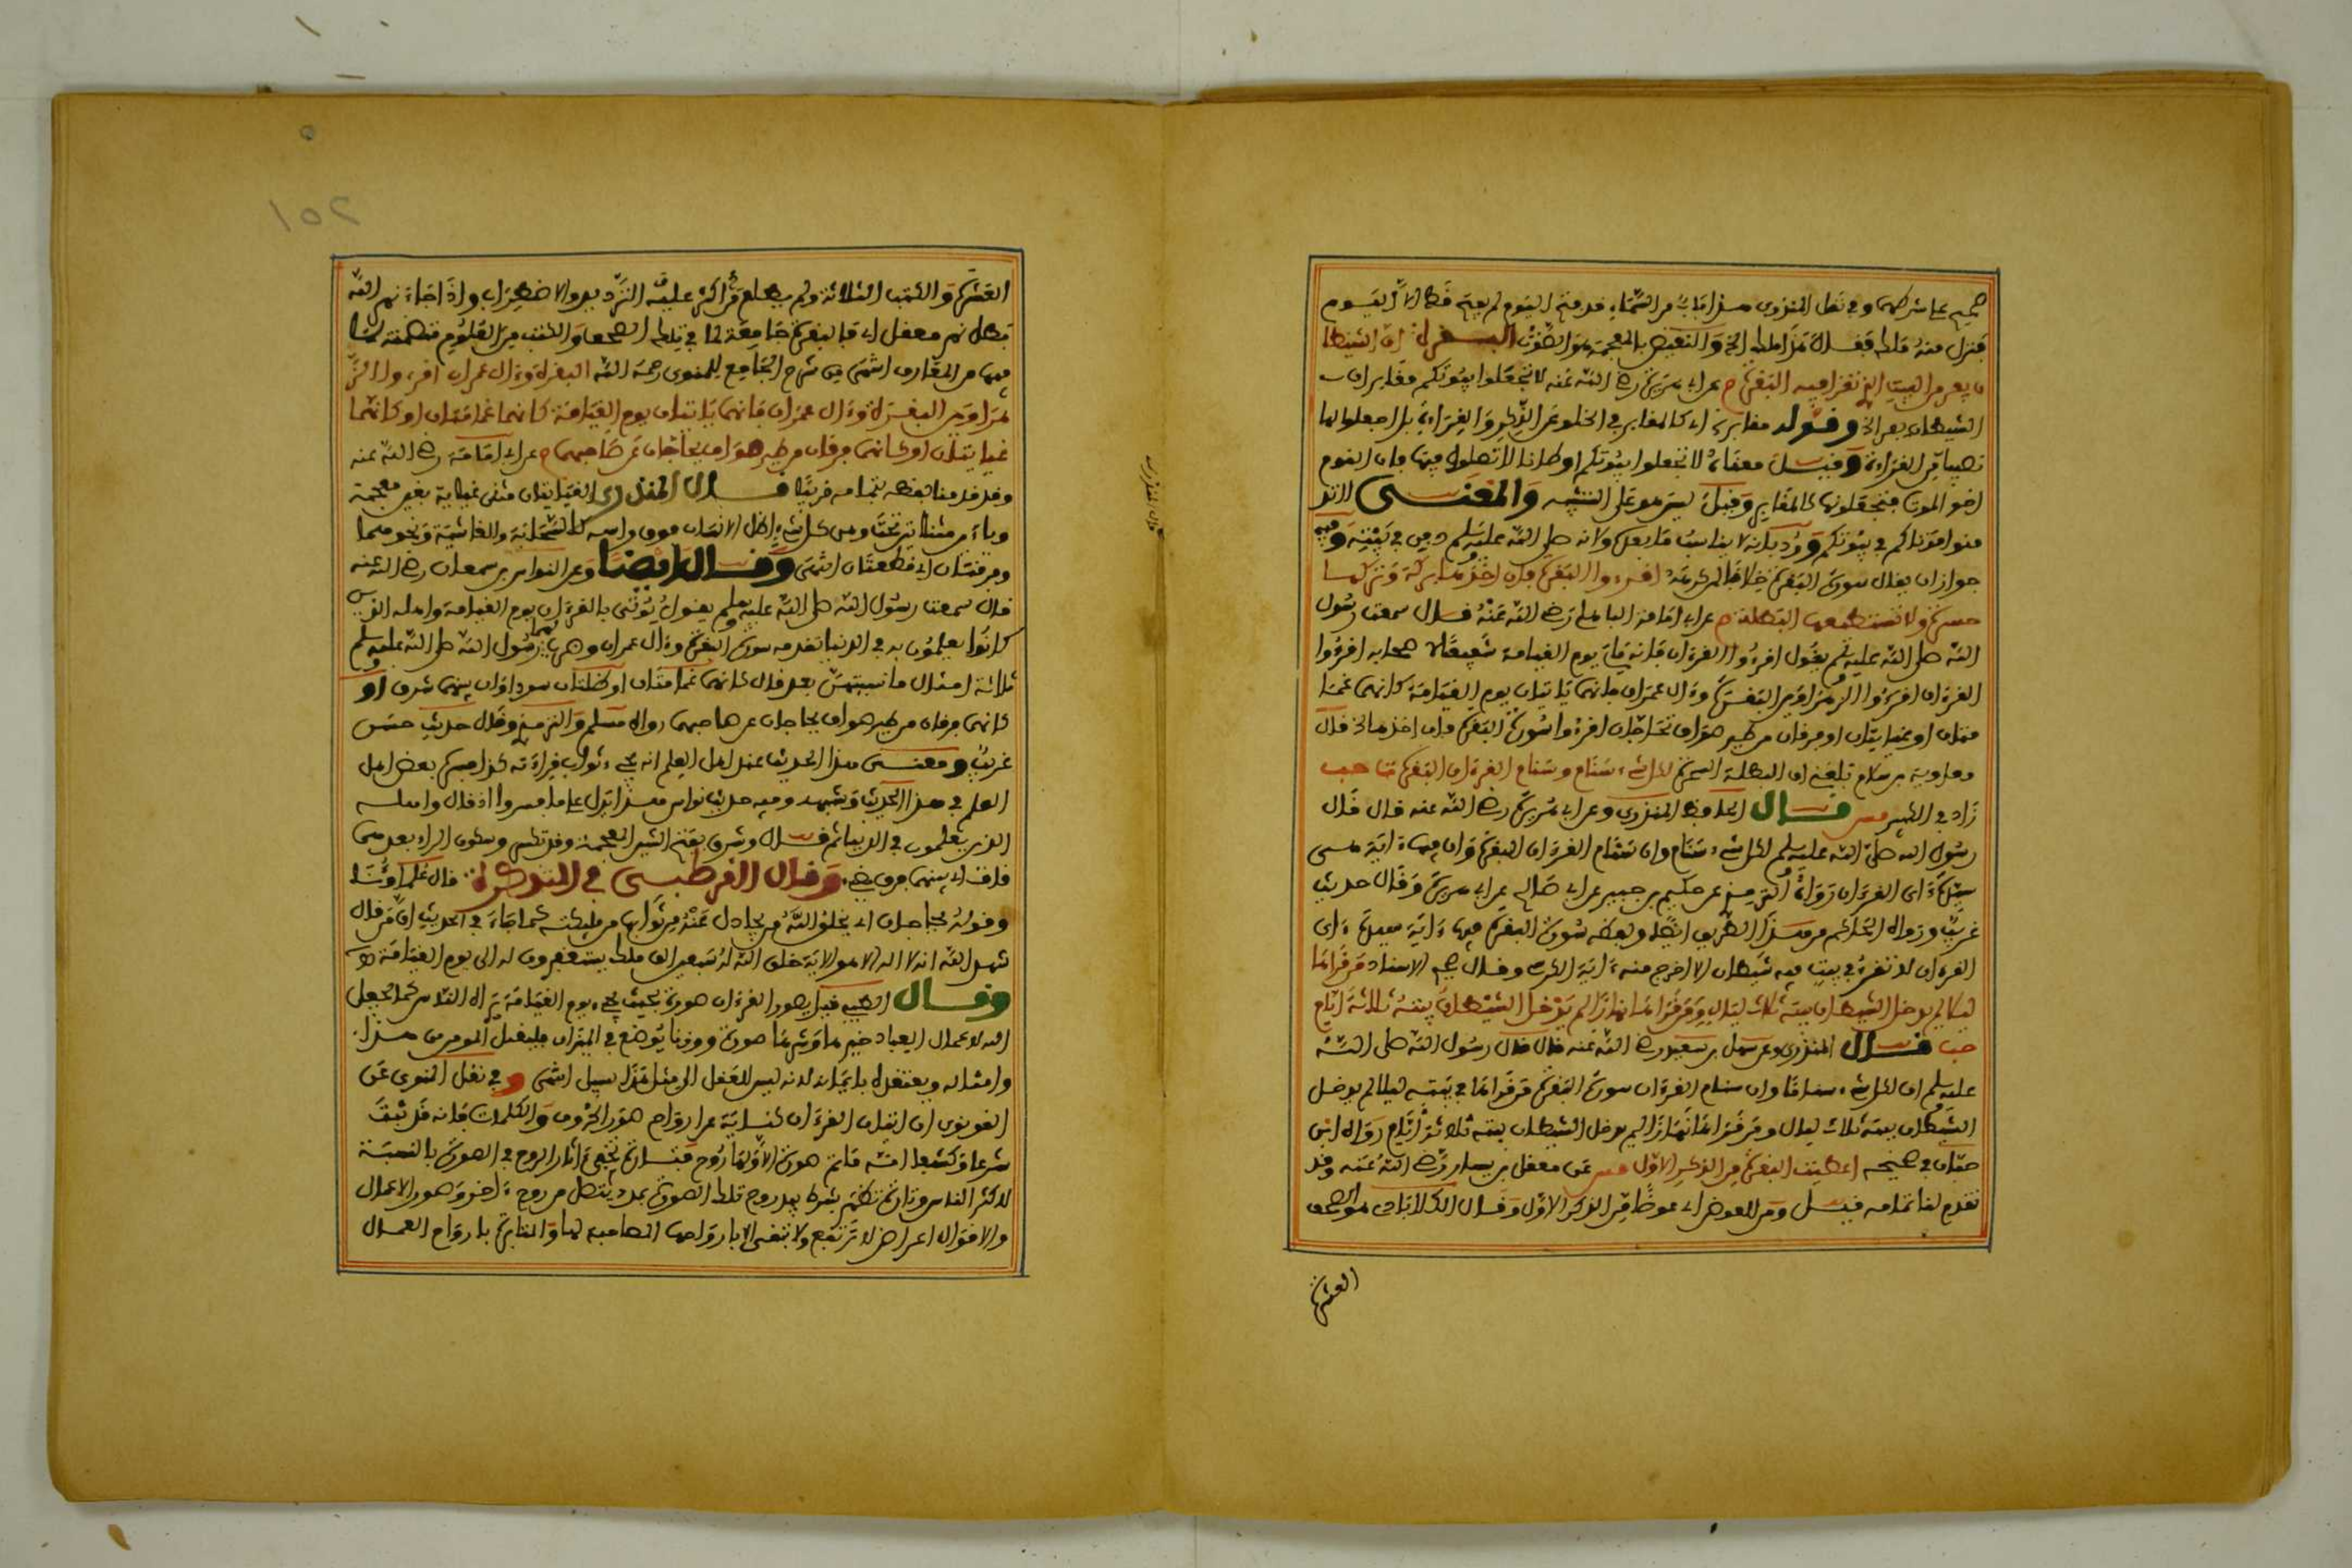 صحيح على شرطهما وفي نقل المنذري هذا باب من السماء فتح اليوم لم يفتح قط الا اليوم
فنزل منه ملك فقال هذا ملك الخ والنقيض بالمعجمة هو الصوت البقرة ان الشيطا
ن يفر من البيت الذي تقرأ فيه البقرة م عن أبي هريرة رضي الله عنه لا تجعلوا بيوتكم مقابر ان
الشيطان يفر الخ وقوله مقابر اي كالمقابر في الخلو عن الذكر والقراءة بل اجعلوا لها
نصيبا من القراءة وقيل معناه لا تجعلوا بيوتكم اوطانا لا تصلون فيها فان النوم
اخو الموت فتجعلونها كالمقابر وقيل ليس هو على التشبيه والمعنى لا تد
فنوا موتاكم في بيوتكم ورد بانه لا يناسب ما بعده وانه صلى الله عليه وسلم دفن في بيته وفيه
جواز ان يقال سورة البقرة خلافا لمن كرهه اقرءوا البقرة فان اخذها بركة وتركها
حسرة ولا تستطيعها البطلة م عن أبي امامة الباهلي رضي الله عنه قال سمعت رسول
الله صلى الله عليه وسلم يقول اقرءوا القرءان فانه يأتي يوم القيامة شفيعا لاصحابه اقرءوا
القرءان اقرءوا الزهراوين البقرة وءال عمران فانهما يأتيان يوم القيامة كانهما غما
متان او غيايتان او فرقان من طير صواف تحاجان اقرءوا سورة البقرة فان اخذها الخ قال
معاوية بن سلام بلغني ان البطلة السحرة لكل شيء سنام وسنام القرءان البقرة
زاد في الكبير قال الحافظ المنذري وعن أبي هريرة رضي الله عنه قال قال
رسول الله صلى الله عليه وسلم لكل شيء سنام وان سنام القرءان البقرة وان فيها ءاية هي
سيدة ءاي القرءان رواه الترمذي عن حكيم بن جبير عن أبي صالح عن أبي هريرة وقال حديث
غريب ورواه الحاكم من هذا الطريق ايضا ولفظه سورة البقرة فيها ءاية سيدة ءاي
القرءان لا تقرأ في بيت فيه شيطان الا خرج منه ءاية الكرسي وقال صحيح الاسناد من قرأها
ليلا لم يدخل الشيطان بيته ثلاث ليال ومن قرأها نهارا لم يدخل الشيطان بيته ثلاثة أيام
حب قال المنذري وعن سهل بن سعيد رضي الله عنه قال قال رسول الله صلى الله
عليه وسلم ان لكل شيء سناما وان سنام القرءان سورة البقرة من قرأها في بيته ليلا لم يدخل
الشيطان بيته ثلاث ليال ومن قرأها نهارا لم يدخل الشيطان بيته ثلاثة أيام رواه ابن
حبان في صحيحه اعطيت البقرة من الذكر الاول عن معقل بن يسار رضي الله عنه وقد
تقدم لنا تمامه قيل ومن للعوض اي عوضا من الذكر الاول وقال الكلاباذي هو الصحف
العشرة
العشرة والكتب الثلاثة ولم يطلع من اكثر عليه الترديد والاضطراب واذا جاء نهر الله
بطل نهر معقل اي فالبقرة جامعة لما في تلك الصحف والكتب من العلوم متضمنة لما
فيها من المعارف انتهى من شرح الجامع للمناوي رحمه الله البقرة وءال عمران اقرءوا الز
هراوين البقرة وءال عمران فانهما يأتيان يوم القيامة كانهما غمامتان او كانهما
غيايتان او كانهما فرقان من طير صواف يحاجان عن صاحبهما م عن أبي امامة رضي الله عنه
وقد قدمنا لفظه بتمامه قريبا قال المنذري الغيايتان مثنى غياية بغين معجمة
وياءين مثناتين تحت وهي كل شيء اظل الانسان فوق راسه كالسحابة والغاشية ونحوهما
وفرقتان اي قطعتان انتهى وقال ايضا وعن النواس بن سمعان رضي الله عنه
قال سمعت رسول الله صلى الله عليه وسلم يقول يؤتى بالقرءان يوم القيامة واهله الذين
كانوا يعلمون به في الدنيا تقدمه سورة البقرة وءال عمران وضرب لهما رسول الله صلى الله عليه وسلم
ثلاثة امثال ما نسيتهن بعد قال كانهما غمامتان او ظلتان سوداوان بينهما شرق او
كانهما فرقان من طير صواف يحاجان عن صاحبهما رواه مسلم والترمذي وقال حديث حسن
غريب ومعنى هذا الحديث عند اهل العلم انه يجيء ثواب قراءته كذا فسره بعض اهل
العلم في هذا الحديث وشبهه وفيه حديث نواس هذا يدل على ما فسروا اذ قال واهله
الذين يعلمون في الدنيا ثم قال وشرق بفتح الشين المعجمة وقد تكسر وسكون الراء بعدهما
قاف اي بينهما فرق يضيء وقال القرطبي في التذكرة قال علماؤنا
وقوله يحاجان اي يخلق الله من يجادل عنه من ثوابها من ملائكته كما جاء في الحديث ان من قال
شهد الله انه لا اله الا هو الآية خلق الله له سبعين الف ملك يستغفرون له الى يوم القيامة
وقال الطيبي قيل يصور القرءان صورة بحيث يجيء يوم القيامة يراه الناس كما يجعل
الله لاعمال العباد خيرها وشرها صورة ووزنا يوضع في الميزان فليقبل المؤمن هذا
وامثاله ويعتقده بايمانه لانه ليس للعقل الى مثل هذا سبيل انتهى وفي نقل النووي عن
القونوي ان اتيان القرءان كناية عن ارواح صور الحروف والكلمات فانه قد ثبت
شرعا وكشفا انه ما ثم صورة الا ولها روح فتارة تخفى ءاثار الروح في الصورة بالنسبة
لاكثر الناس وتارة تظهر بشرط يبد روح تلك الصورة بمدد يتصل من روح ءاخر وصور الاعمال
والاقوال اعراض لا ترتفع ولا تبقى الا بارواحها المصاحبة لها والناتئة بارواح العمال